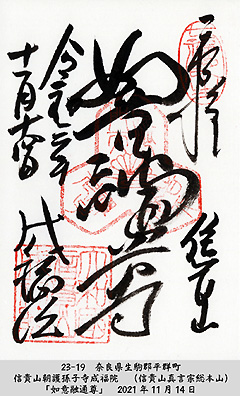 奉拝
信貴山
如意融通尊
成福院
令和三年
十一月十四日
23-19 奈良県生駒郡平群町
信貴山朝護孫子寺成福院 (信貴山真言宗総本山)
「如意融通尊」 2021年11月14日